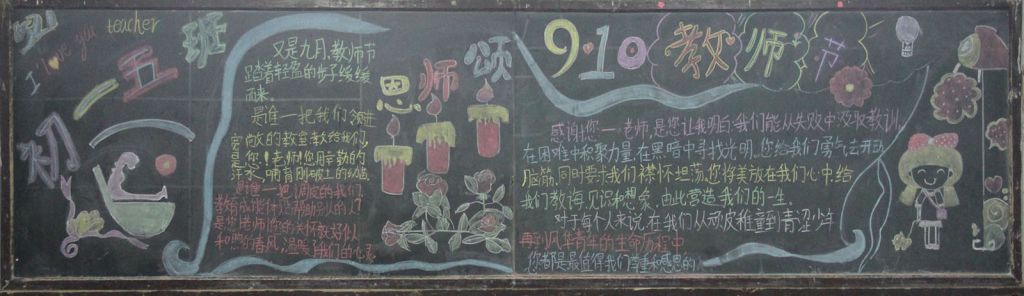 初一五班
I love you teacher
师颂
恩
又是九月教师节
踏着轻盈的步子缓缓
而来
是谁一把我们领进
宽敞的教室教给我们
是您!老师!您用辛勤的
汗水,哺育刚破土的
是谁一把调皮的我们
教
是您老师您的关怀
和煦春风,温暖我们的心
9·10教师节
感谢您——老师,是您让我明白我们能从失败中汲取教训,
在困难中积聚力量在黑暗中寻找光明,您给我们勇气去开动
脑筋,同时要求我们襟怀坦荡,您将美放在我们心中给
我们教诲,见识和想象,由此营造我们的一生。
对于每个人来说,在我们从顽皮稚童到青涩少年
再到风华青年的生命历程中
你都是最值得我们尊重和感恩的